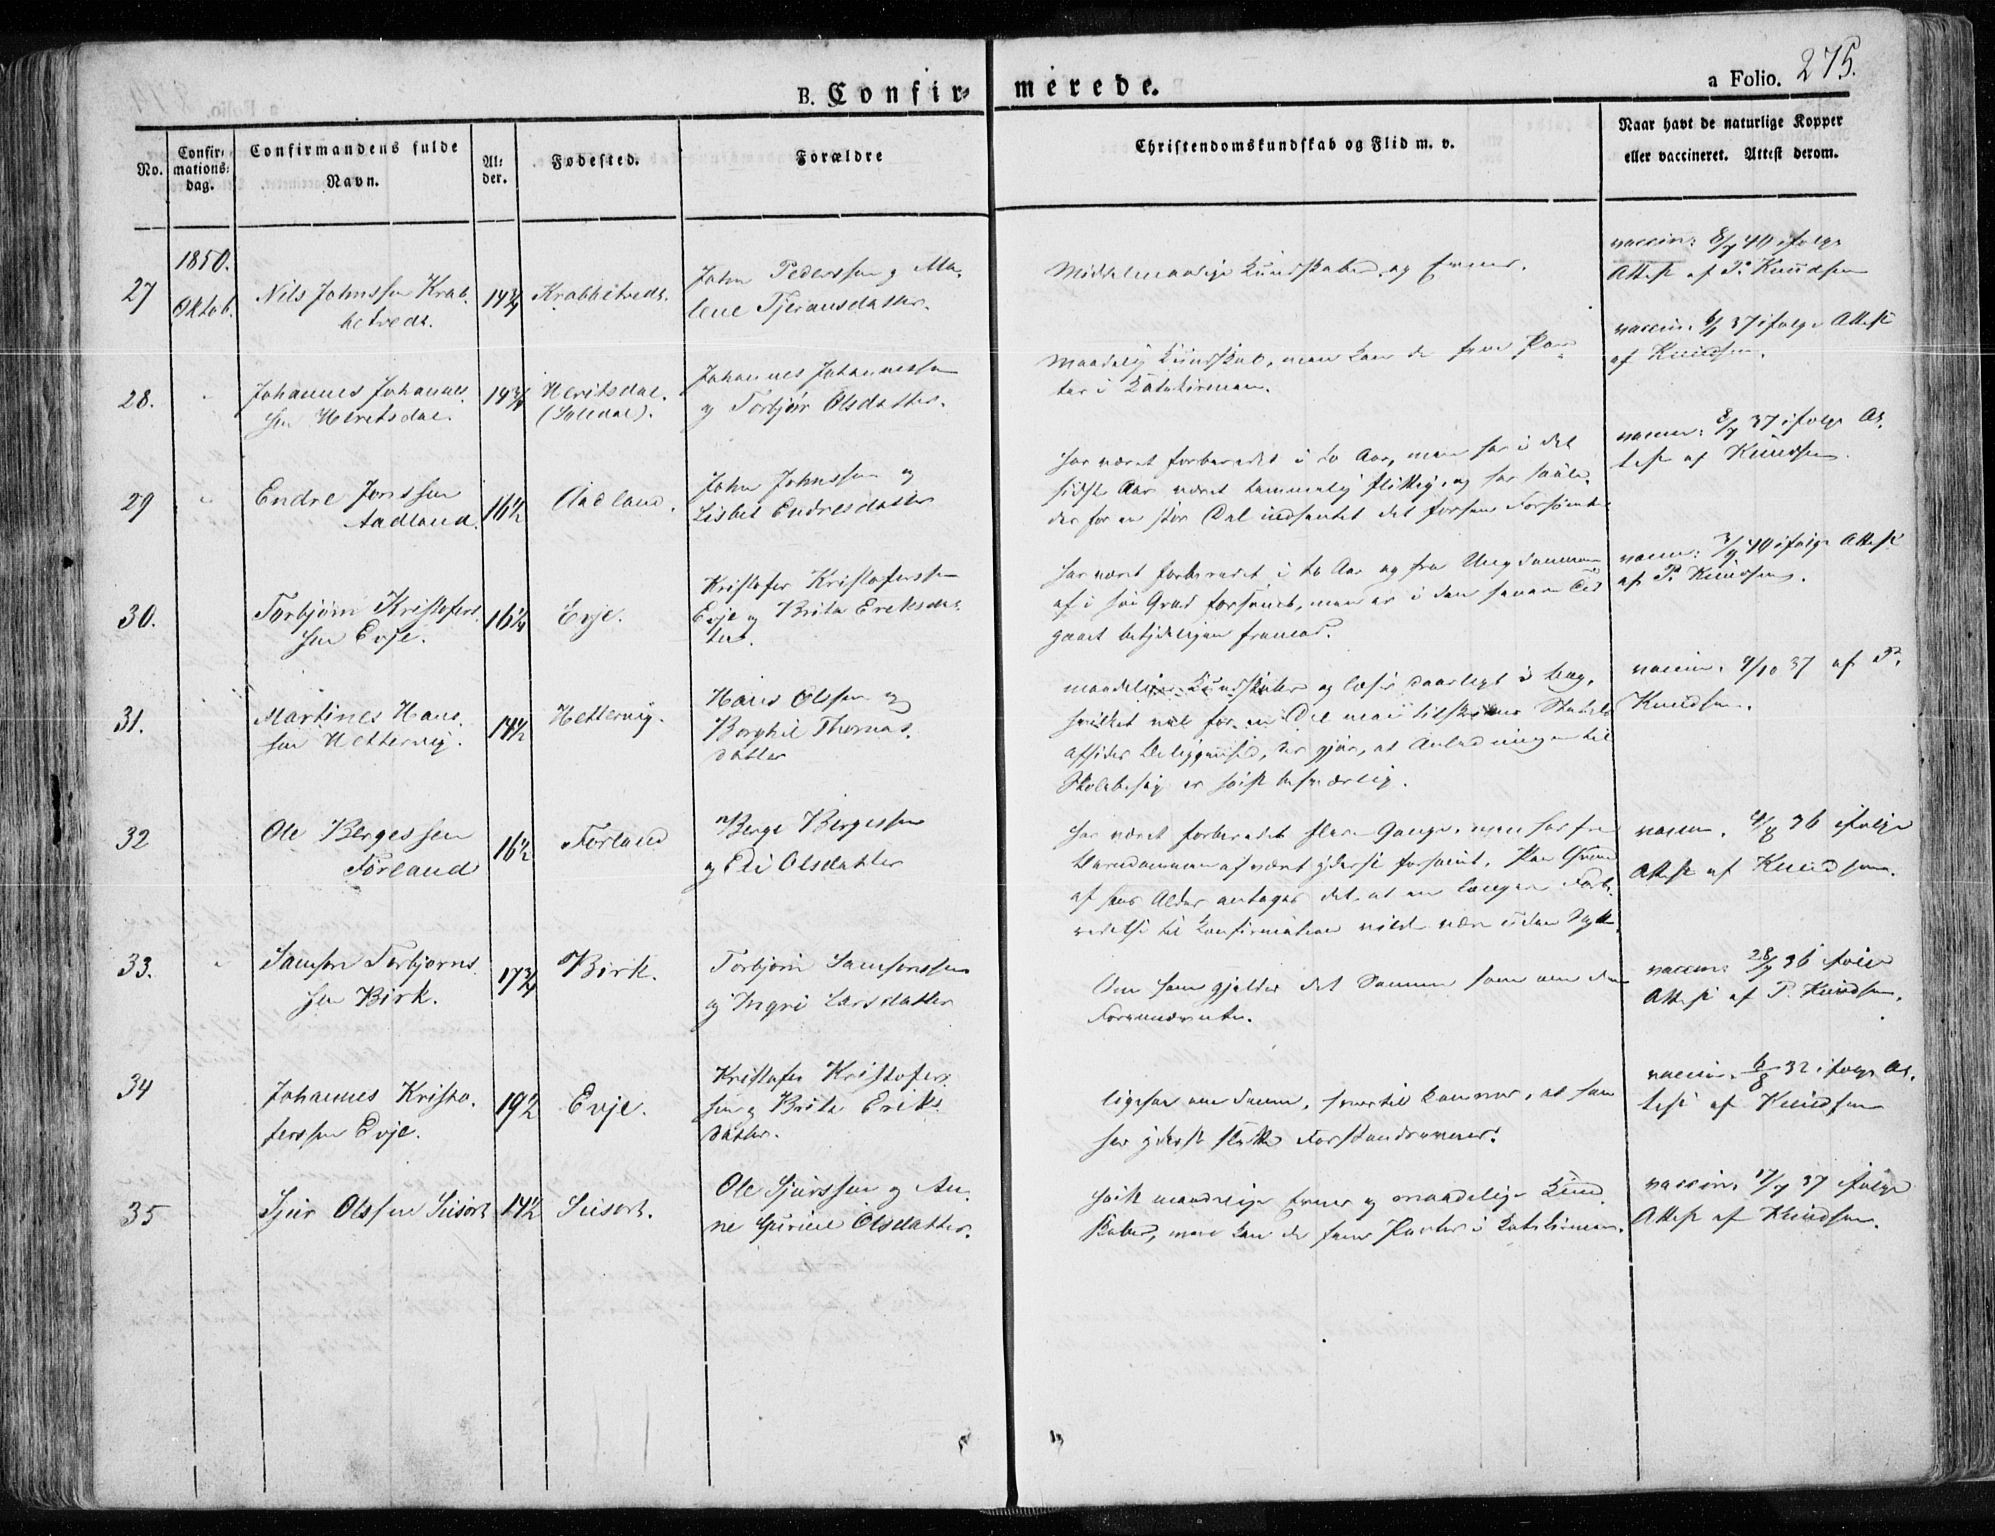 B. Confir= merede.
a Folio. 275.
No.
Confir= mations= dag.
Confirmandens fulde Navn.
Al= der.
Fødested.
Forældre
Christendomskundskab og Flid m. v.
Naar havt de naturlige Kopper eller vaccineret. Attest derom.
1850.
27
Oktob.
Nils Johnssen Krab-
betvedt.
14¾
Krabbetvedt.
John Pederssen og Ma-
lene Tjeransdatter.
Middelmaadige Kundskaber og Evner.
vaccin: 8/7 40 ifølge
Attest af P. Knudsen
28.
Johannes Johannes-
sen
19¾
(Søledal).
Johannes Johannessen
og Torbjør Olsdatter.
Maadelig Kundskab, men kan de fem Par-
ter i Katekismen.
vaccin. 6/7 37 ifølge Attest
af Knudsen.
29
Endre Jonssen
Aadland.
16½
Aadland.
John Johnssen og
Lisbet Endresdatter
har været forberedt i to Aar, men har i det
sidste Aar været temmelig flittig, og har saale-
des for en stor Del indhentet det forhen Forsømte
vaccin: 8/7 37 ifølge At-
test af Knudsen.
30.
Torbjørn Kristofers-
sen Evje.
16¼
Evje.
Kristofer Kristoferssen
Evje og Brita Eriksdat-
ter.
har været forberedt i to Aar og fra Ungdommen
af i høi Grad forsømt, men er i den senere Tid
gaaet betydeligen fremad.
vaccin: 3/9 40 ifølge Attest
af P. Knudsen.
31.
Martines Hans-
sen Hettervig.
14½
Hettervig.
Hans Olssen og
Borghil Thomas-
datter
maadelige Kundskaber og læser daarligt i Bog,
hvilket vel for en Del maa tilskrives Stedets
afsides Beliggenhed, der gjør, at Anledningen til
Skolebesøg er høist besværlig.
vaccin. 9/10 37 af P.
Knudsen.
32
Ole Bergessen
Førland
16½
Førland
Berge Bergessen
og Eli Olsdatter
har været forberedt flere Gange, men har fra
Barndommen af været yderst forsømt. Paa Grund
af hans Alder antages det, at en længere Forbe-
redelse til Konfirmation vilde være uden Nytte.
vaccin. 9/8 36 ifølge
Attest af Knudsen.
33.
Samson Torbjørns-
sen Birk.
17¾
Birk.
Torbjørn Samsonssen
og Ingri Larsdatter
Om ham gjelder det Samme som om den
Forannævnte.
vaccin: 28/7 36 ifølge
Attest af P. Knudsen.
34
Johannes Kristo-
ferssen Evje.
19½
Evje.
Kristofer Kristofers-
sen og Brita Eriks-
datter.
ligesaa om denne, hvortil kommer, at han
har yderst slette Forstandsevner.
vaccin. 6/8 32 ifølge At-
test af Knudsen
35
Sjur Olssen
14½
Ole Sjurssen og An-
ne Gurine Olsdatter.
høist maadelige Evner og maadelige Kund-
skaber, men kan de fem Parter i Katekismen.
vaccin. 17/7 37 ifølge
Attest af Knudsen.